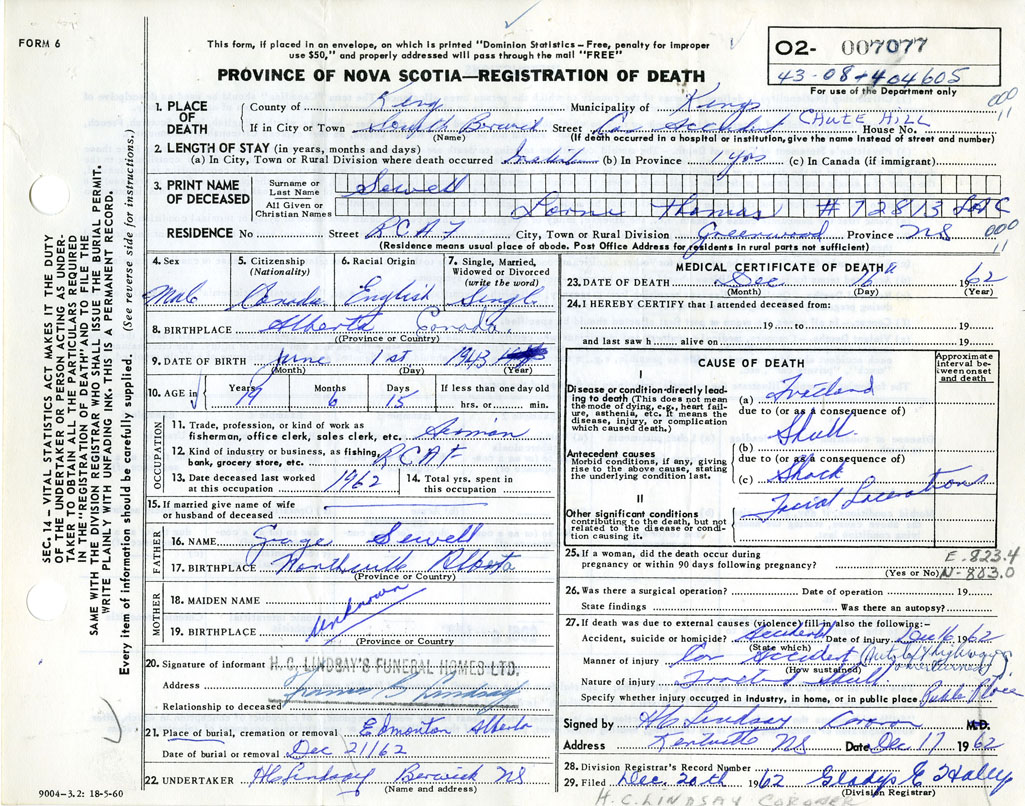 FORM 6
This form, if placed in an envelope, on which is printed "Dominion Statistics – Free, penalty for improper
use $50," and properly addressed will pass through the mail "FREE"
PROVINCE OF NOVA SCOTIA—REGISTRATION OF DEATH
O2- 007077
43-08-404605
For use of the Department only
000
11
1. PLACE OF DEATH
County of King Municipality of Kings
CHUTE HILL
If in City or Town South Berwick Street Car Accident House No.
(Name) (If death occurred in a hospital or institution, give the name instead of street and number)
2. LENGTH OF STAY (in years, months and days)
(a) In City, Town or Rural Division where death occurred (b) In Province 1 yrs (c) In Canada (if immigrant)
3. PRINT NAME OF DECEASED
Surname or Last Name Sewell
All Given or Christian Names Lorne Thomas # 72813 LAC
RESIDENCE No Street RCAF City, Town or Rural Division Greenwood Province NS
000
11
(Residence means usual place of abode. Post Office Address for residents in rural parts not sufficient)
4. Sex
Male
5. Citizenship
(Nationality)
Canada
6. Racial Origin
English
7. Single, Married,
Widowed or Divorced
(write the word)
Single
8. BIRTHPLACE Alberta Canada.
(Province or Country)
9. DATE OF BIRTH June 1st 1943
(Month) (Day) (Year)
10. AGE in
Years 19
Months 6
Days 15
If less than one day old
hrs. or min.
OCCUPATION
11. Trade, profession, or kind of work as
fisherman, office clerk, sales clerk, etc. Airman
12. Kind of industry or business, as fishing,
bank, grocery store, etc. RCAF
13. Date deceased last worked
at this occupation 1962
14. Total yrs. spent in
this occupation
15. If married give name of wife
or husband of deceased
FATHER
16. NAME Sewell
17. BIRTHPLACE Alberta
(Province or Country)
MOTHER
18. MAIDEN NAME
unknown
19. BIRTHPLACE
(Province or Country)
20. Signature of informant H. C. LINDSAY'S FUNERAL HOMES LTD.
Address Lindsay
Relationship to deceased
21. Place of burial, cremation or removal Edmonton Alberta
Date of burial or removal Dec 21/62
22. UNDERTAKER HC Lindsay Berwick NS
(Name and address)
9004–3.2: 18-5-60
SEC. 14 – VITAL STATISTICS ACT MAKES IT THE DUTY
OF THE UNDERTAKER OR PERSON ACTING AS UNDER-
TAKER TO OBTAIN ALL THE PARTICULARS REQUIRED
IN THE "REGISTRATION OF DEATH" AND TO FILE THE
SAME WITH THE DIVISION REGISTRAR WHO SHALL ISSUE THE BURIAL PERMIT.
WRITE PLAINLY WITH UNFADING INK. THIS IS A PERMANENT RECORD.
Every item of information should be carefully supplied. (See reverse side for instructions.)
MEDICAL CERTIFICATE OF DEATH
23. DATE OF DEATH Dec 16 1962
(Month) (Day) (Year)
24. I HEREBY CERTIFY that I attended deceased from:
19 to 19
and last saw h alive on 19
CAUSE OF DEATH
Approximate
interval be-
tween onset
and death
I
Disease or condition directly lead-
ing to death (This does not mean
the mode of dying, e.g., heart fail-
ure, asthenia, etc. It means the
disease, injury, or complication
which caused death.)
(a)
due to (or as a consequence of
Skull
Antecedent causes
Morbid conditions, if any, giving
rise to the above cause, stating
the underlying condition last.
(b)
due to (or as a consequence of)
(c) Shock
II
Other significant conditions
contributing to the death, but not
related to the disease or condi-
tion causing it.
Facial Lacerations
25. If a woman, did the death occur during
pregnancy or within 90 days following pregnancy?
(Yes or No)
E-823.4
N-803.0
26. Was there a surgical operation? Date of operation 19
State findings Was there an autopsy?
27. If death was due to external causes (violence) fill in also the following:–
Accident, suicide or homicide? Accident Date of injury Dec 16 1962
(State which)
Manner of injury Car Accident (Auto left highway overturned)
(How sustained)
Nature of injury Skull
Specify whether injury occurred in industry, in home, or in public place Public Place
Signed by HC Lindsay Coroner M.D.
Address Kentville NS Date Dec 17 1962
28. Division Registrar's Record Number
29. Filed Dec. 20th 1962 Gladys E Haley
(Division Registrar)
H.C. LINDSAY CORONER